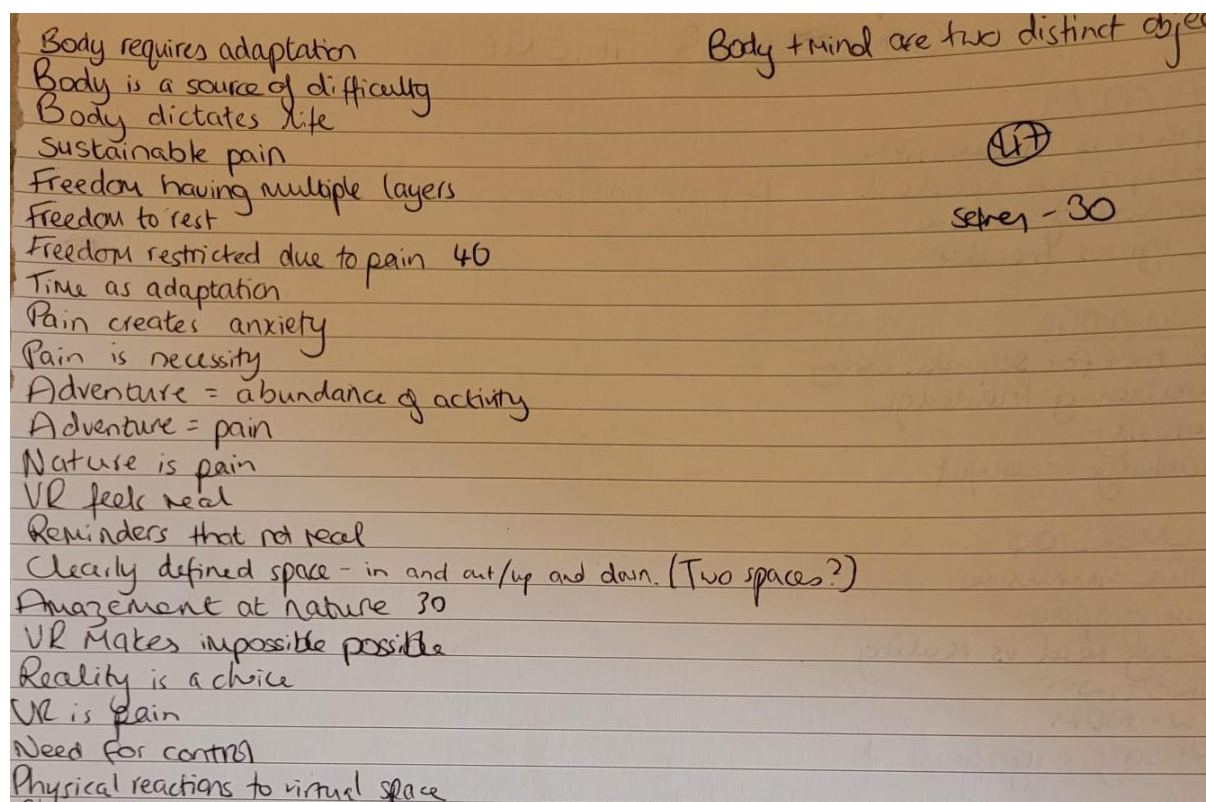 Body requires adaptation
Body + Mind are two distinct obje
Body is a source of difficulty
Body dictates life
Sustainable pain
Lit
Freedom having multiple layers
Freedom to rest
- 30
Freedom restricted due to pain 40
Time as adaptation
Pain creates anxiety
Pain is necessity
Adventure = abundance of activity
Adventure = pain
Nature is pain
VR feels real
Reminders that not real
Clearly defined space - in and out/up and down. (Two spaces?)
Amazement at nature 30
VR Makes impossible possible
Reality is a choice
VR is pain
Need for control
Physical reactions to virtual space